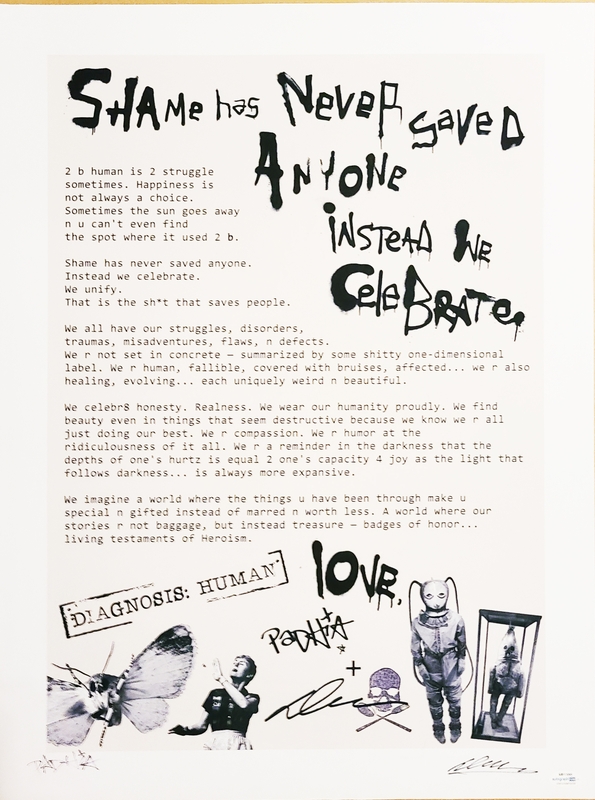 SHAMe has NeveR SaveD
ANYONe
iNSTeAD We
CeleBRATe.
2 b human is 2 struggle
sometimes. Happiness is
not always a choice.
Sometimes the sun goes away
n u can't even find
the spot where it used 2 b.
Shame has never saved anyone.
Instead we celebrate.
We unify.
That is the sh*t that saves people.
We all have our struggles, disorders,
traumas, misadventures, flaws, n defects.
We r not set in concrete – summarized by some shitty one-dimensional
label. We r human, fallible, covered with bruises, affected... we r also
healing, evolving... each uniquely weird n beautiful.
We celebr8 honesty. Realness. We wear our humanity proudly. We find
beauty even in things that seem destructive because we know we r all
just doing our best. We r compassion. We r humor at the
ridiculousness of it all. We r a reminder in the darkness that the
depths of one's hurtz is equal 2 one's capacity 4 joy as the light that
follows darkness... is always more expensive.
We imagine a world where the things u have been through make u
special n gifted instead of marred n worth less. A world where our
stories r not baggage, but instead treasure – badges of honor...
living testaments of Heroism.
lOVe,
DIAGNOSIS: HUMAN
+